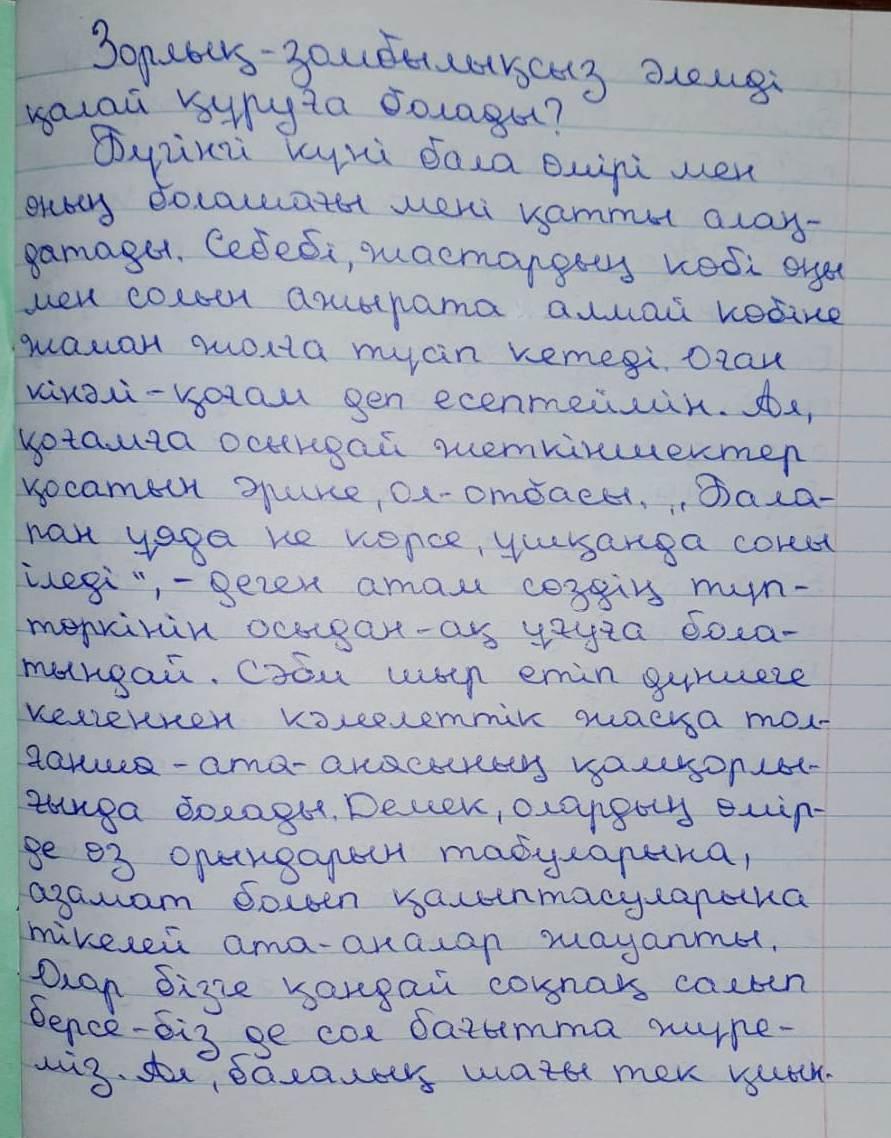 Зорлық-зомбылықсыз әлемді
қалай құруға болады?
Бүгінгі күні бала өмірі мен
оның болашағы мені қатты алаң-
датады. Себебі, жастардың көбі оңы
мен солын ажырата алмай көбіне
жаман жолға түсіп кетеді. Оған
кінәлі-қоғам деп есептеймін. Ал,
қоғамға осындай жеткіншектер
қосатын әрине, ол-отбасы. „Бала-
пан ұяда не көрсе, ұшқанда соны
іледі", - деген аталы сөздің түп-
төркінін осыдан-ақ ұғуға бола-
тындай. Сәби шыр етіп дүниеге
келгеннен кәмелеттік жасқа тол-
ғанша - ата-анасының қамқорлы-
ғында болады. Демек, олардың өмір-
де өз орындарын табуларына,
азамат болып қалыптасуларына
тікелей ата-аналар жауапты.
Олар бізге қандай соқпақ салып
берсе-біз де сол бағытта жүре-
міз. Ал, балалық шағы тек қиын-